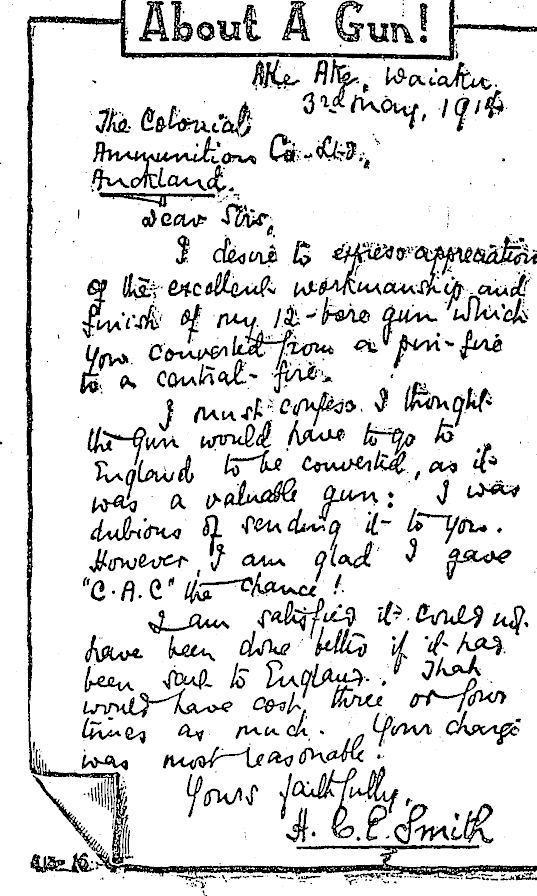 About A Gun!
Ake Ake, Waiaku.
3rd May, 1914
The Colonial
Ammunition Co. Ltd.,
Auckland.
Dear Sirs,
I desire to express appreciation
of the excellent workmanship and
finish of my 12-bore gun which
you converted from a pin-fire
to a central-fire.
I must confess I thought
the gun would have to go to
England to be converted, as it
was a valuable gun: I was
dubious of sending it to you.
However, I am glad I gave
"C.A.C" the chance!
I am satisfied it could not
have been done better if it had
been sent to England. That
would have cost three or four
times as much. Your charge
was most reasonable.
Yours faithfully,
H. C. E. Smith